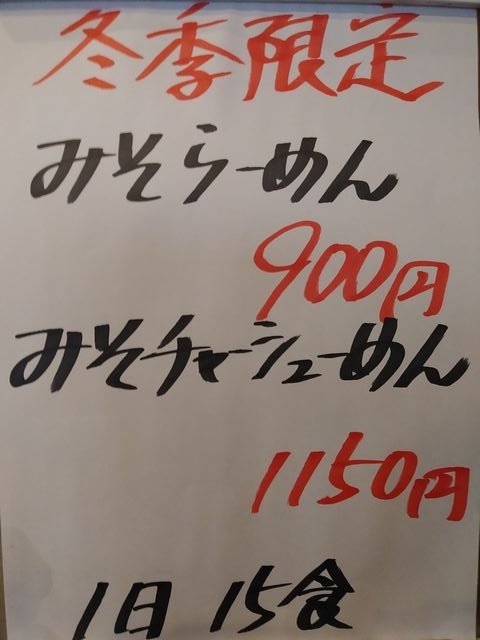 冬季限定
みそらーめん
900円
みそチャーシューめん
1150円
1日 15食